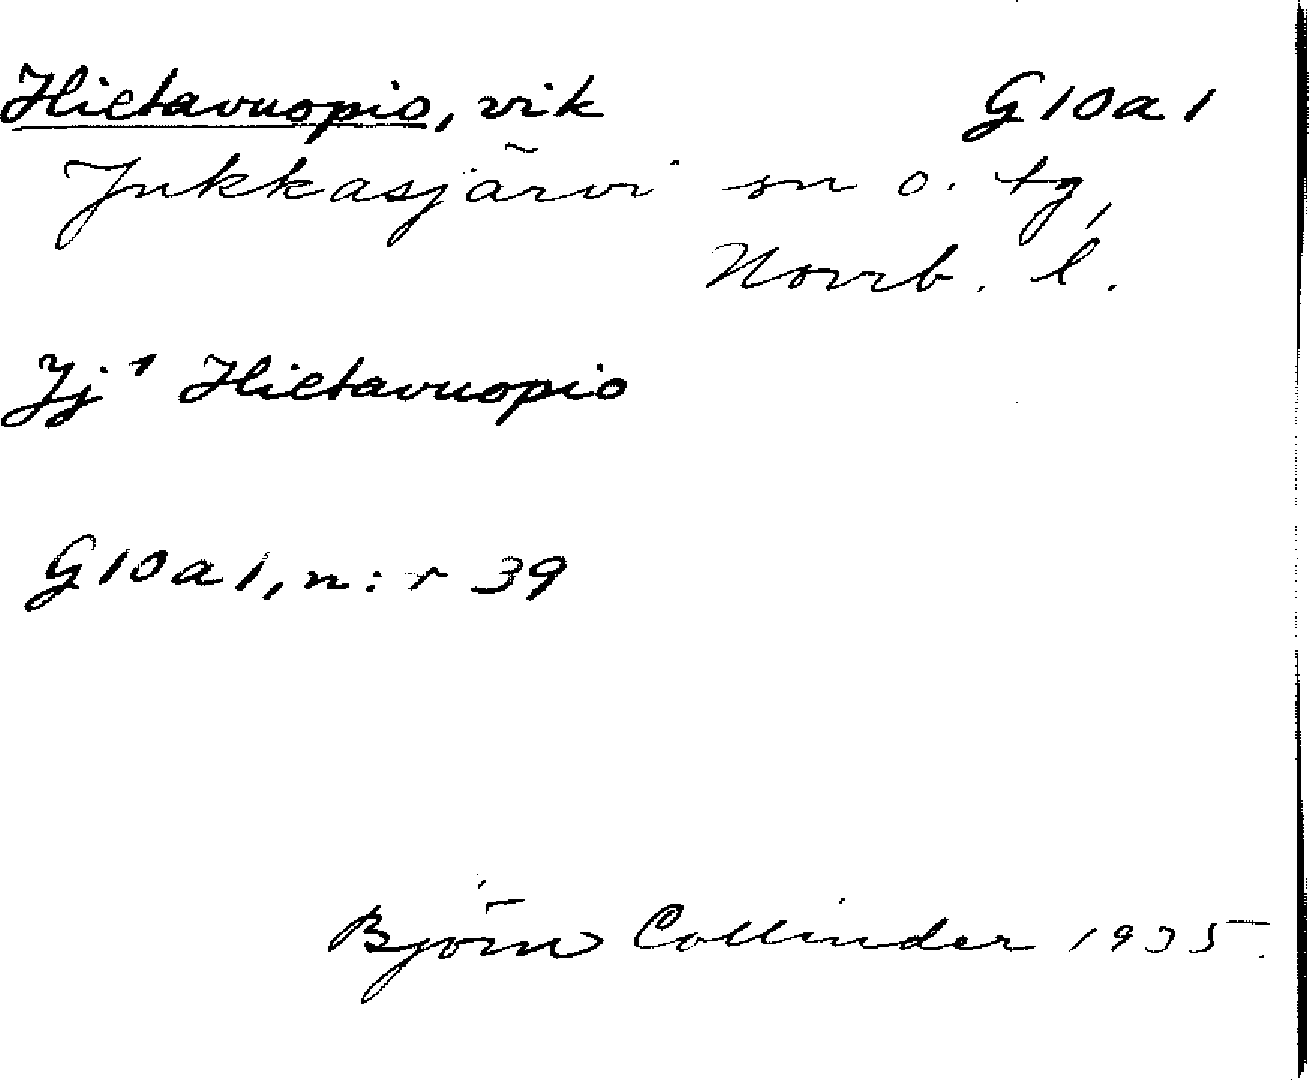 Hietavuopio, vik G10a1
Jukkasjärvi sn o. tg,
Norrb. l.
Jj¹ Hietavuopio
G10a1, n:r 39
Björn Collinder 1935.